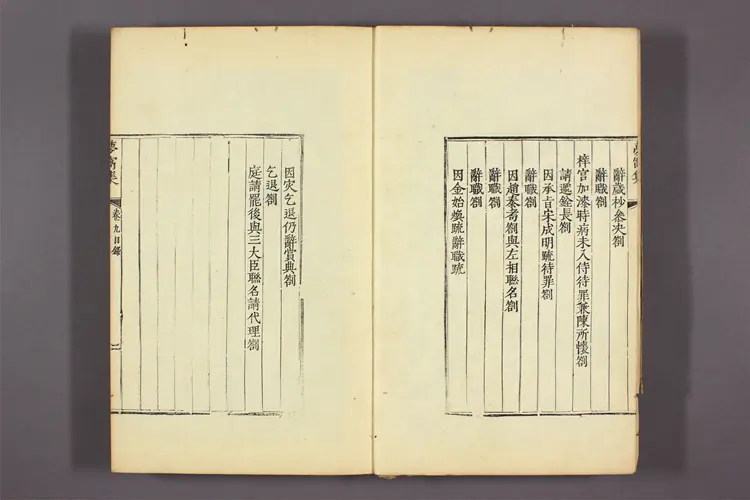 辭歲抄參决劄
辭職劄
梓官加漆時病未入侍待罪兼陳所懷劄
請遞銓長劄
因承旨宋成明疏待罪劄
辭職劄
因趙泰耈劄與左相聯名劄
辭職劄
辭職劄
因金始㷜疏辭職疏
因灾乞退仍辭賞典劄
乞退劄
庭請罷後與三大臣聯名請代理劄
夢窩集
卷九目錄
二